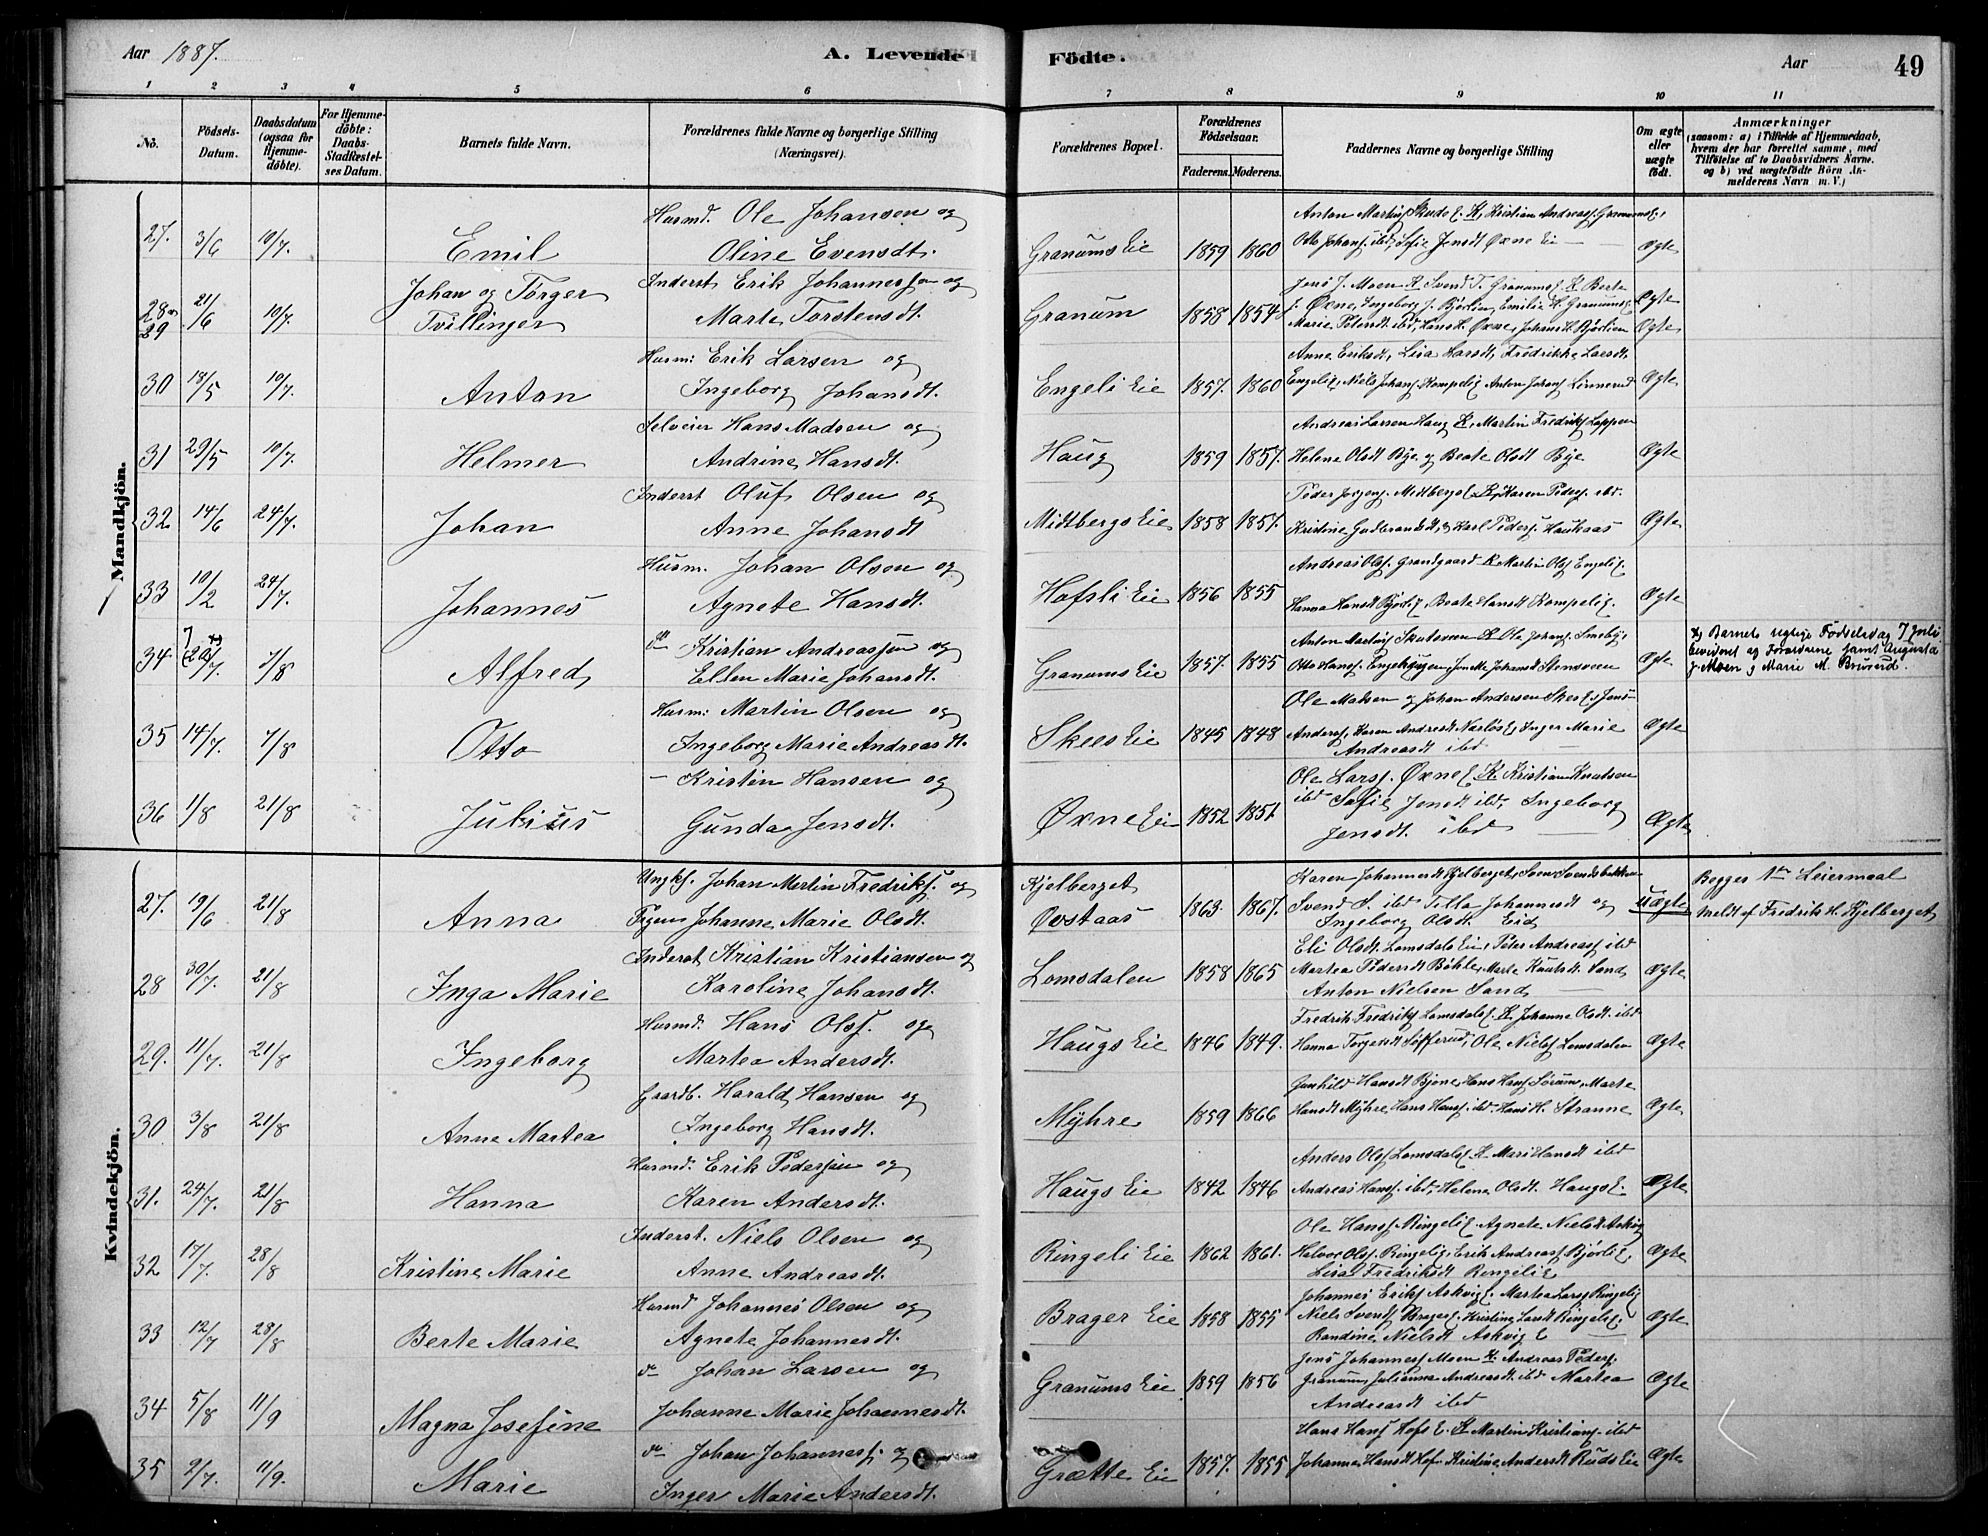 Aar 1887.
A. Levende Födte.
Aar
49
1 2 3 4 5 6 7 8 9 10 11
No.
Födsels-Datum.
Daabsdatum (ogsaa for Hjemmedöbte).
For Hjemmedöbte: Daabs-Stadfæstelses Datum.
Barnets fulde Navn.
Forældrenes fulde Navne og borgerlige Stilling (Næringsvei).
Forældrenes Bopæl.
Forældrenes Födselsaar.
Faderens. Moderens.
Faddernes Navne og borgerlige Stilling
Om ægte eller uægte födt.
Anmærkninger
(saasom: a) i Tilfælde af Hjemmedaab, hvem der har forrettet samme, med Tilföielse af to Daabsvidners Navne, og b) ved uægtefödte Börn Anmelderens Navn m. V.)
Mandkjön.
27. 3/6 10/7. Emil
Husmd. Ole Johansen og
Oline Evensdt.
Granums Eie 1859 1860
Otto Johans. ibd, Sofie Jensdt Øxne Eie
Ægte
28 og 29 21/6 10/7. Johan og Torger
Tvillinger
Inderst Erik Johannessen og
Marte Torstensdt.
Granum 1858 1854
Jens J. Moen K. Svend T. Granumsf. K Berte
J. Øxne, Ingeborg J. Bjørlien, Emilie H. Granumsf.
Marie Petersdt ibd, Hans L. Øxne, Johans H. Bjørlien
Ægte
Ægte
30 18/5 10/7. Anton
Husm: Erik Larsen og
Ingeborg Johansdt.
Engeli Eie 1857. 1860
Anne Eriksdt, Lisa Larsdt, Fredrikke Larsdt.
Ægte
31 29/5 10/7. Helmer
Selveier Hans Madsen og
Andrine Hansdt.
Haug 1859 1857.
Andreas Larsen Haug K, Martin Fredriks Loppen
Helene Olsdt Bye og Beate Olsdt Bye
Ægte
32 14/6 24/7. Johan
Inderst Oluf Olsen og
Anne Johansdt
Midtbergs Eie 1858 1857.
Peder Jørgens. Midtbergs E. K, Karen Peders. ibd.
Kristine Gudbrandsdt, og Karl Peders. Haukaas
Ægte
33 10/2 24/7. Johannes
Husm. Johan Olsen og
Agnete Hansdt.
Hofsli Eie 1856 1855
Andreas Olsf. Grandgaard K Martin Olsf Engelig.
Hanna Hansdt Bjørlig, Beate Hansdt Kompelig.
Ægte
34 7/8 Alfred
do Kristian Andreassen og
Ellen Marie Johansdt.
Granums Eie 1857. 1855
Ægte
x) Barnets rigtige Fødselsdag 7 Juli
bevidnet af Forældrene samt Augusta
J. Moen og Marie M. Bruserud.
35 14/7. 7/8 Otto
Husm: Martin Olsen og
Ingeborg Marie Andreasdt.
Skees Eie 1845 1848
Ole Madsen og Johan Andersen Skes E. Jens
Andreasdt ibd
Ægte
36 1/8 21/8 Julius
— Kristin Hansen og
Gunda Jensdt.
Øxne Eie 1852 1851
Ole Larsf. Øxne E K. Kristian Knutsen
ibd Sofie Jensdt ibd, Ingeborg
Jensdt. ibd
Ægte
Kvindekjön.
27. 19/6 21/8 Anna
Ungkf. Johan Martin Fredriksf. og
Pigen Johanne Marie Olsdt.
Kjelberget
Ovstaas 1863. 1867.
Svend S. ibd Silla Johannesdt og
Ingeborg Olsdt. Eid
Uægte
Begges 1ste Leiermaal
Meldt af Fredrik H. Kjelberget
28 30/7. 21/8 Inga Marie
Inderst Kristian Kristiansen og
Karoline Johansdt.
Lomsdalen 1858 1865
Eli Olsdt. Lomsdals Eie, Peter Andreass ibd
Martea Pedersdt Bøhle, Marte Knutsdt. Sand
Anton Nielsen Sand
Ægte
29. 11/7. 21/8 Ingeborg
Husmd. Hans Olsf. og
Martea Andersdt.
Haugs Eie 1846 1849.
Fredrik Fredriks Lomsdals E. K. Johanne Olsdt. ibd
Hanna Torgersdt Sofferud, Ole Niels Lomsdalen
Ægte
30 3/8 21/8 Anne Martea
Gaardb. Harald Hansen og
Ingeborg Hansdt.
Myhre 1859 1866
Gunhild Hansdt Bjone, Hans Hansf Sørum, Marte
Hansdt Myhre, Hans Hansf. ibd Hans H. Stranne
Ægte
31. 24/7. 21/8 Hanna
Husmd. Erik Pedersen og
Karen Andersdt.
Haugs Eie 1842 1846
Anders Olsf Lomsdals E K Mari Hansdt ibd
Andreas Hansf. ibd, Helene Olsdt. Haugs E.
Ægte
32 17/7. 28/8 Kristine Marie
Inderst. Niels Olsen og
Anne Andreasdt.
Ringeli Eie 1862 1861.
Ole Hansf. Ringelig. Agnete Nielsdt Askvig
Halvor Olsf. Ringelig, Erik Andreasf. Bjørli E,
Lisa Fredriksdt Ringelig
Ægte
33 12/7 28/8 Berte Marie
Husmd Johannes Olsen og
Agnete Johannesdt.
Brager Eie 1858 1855
Johannes Eriks Askvig E. Martea Larsf Ringelig
Randine Nielsdt Askvig E
Ægte
34 5/8 11/9 Magna Josefine
do Johan Larsen og
Johanne Marie Johannesdt.
Granums Eie 1859 1856
Jens Johannesf Moen K. Andreas Peders.
Granum, Julianna Andreasdt. ibd Martea
Andreasdt ibd
Ægte
35 2/7. 11/9. Marie
do Johan Johannesf. og
Inger Marie Andersdt.
Grætte Eie 1857. 1855
Hans Hansf Hofs E. K Martin Kristiansf. ibd
Johanne Hansdt Hof. Kristine Andersdt Ruds Eie
Ægte